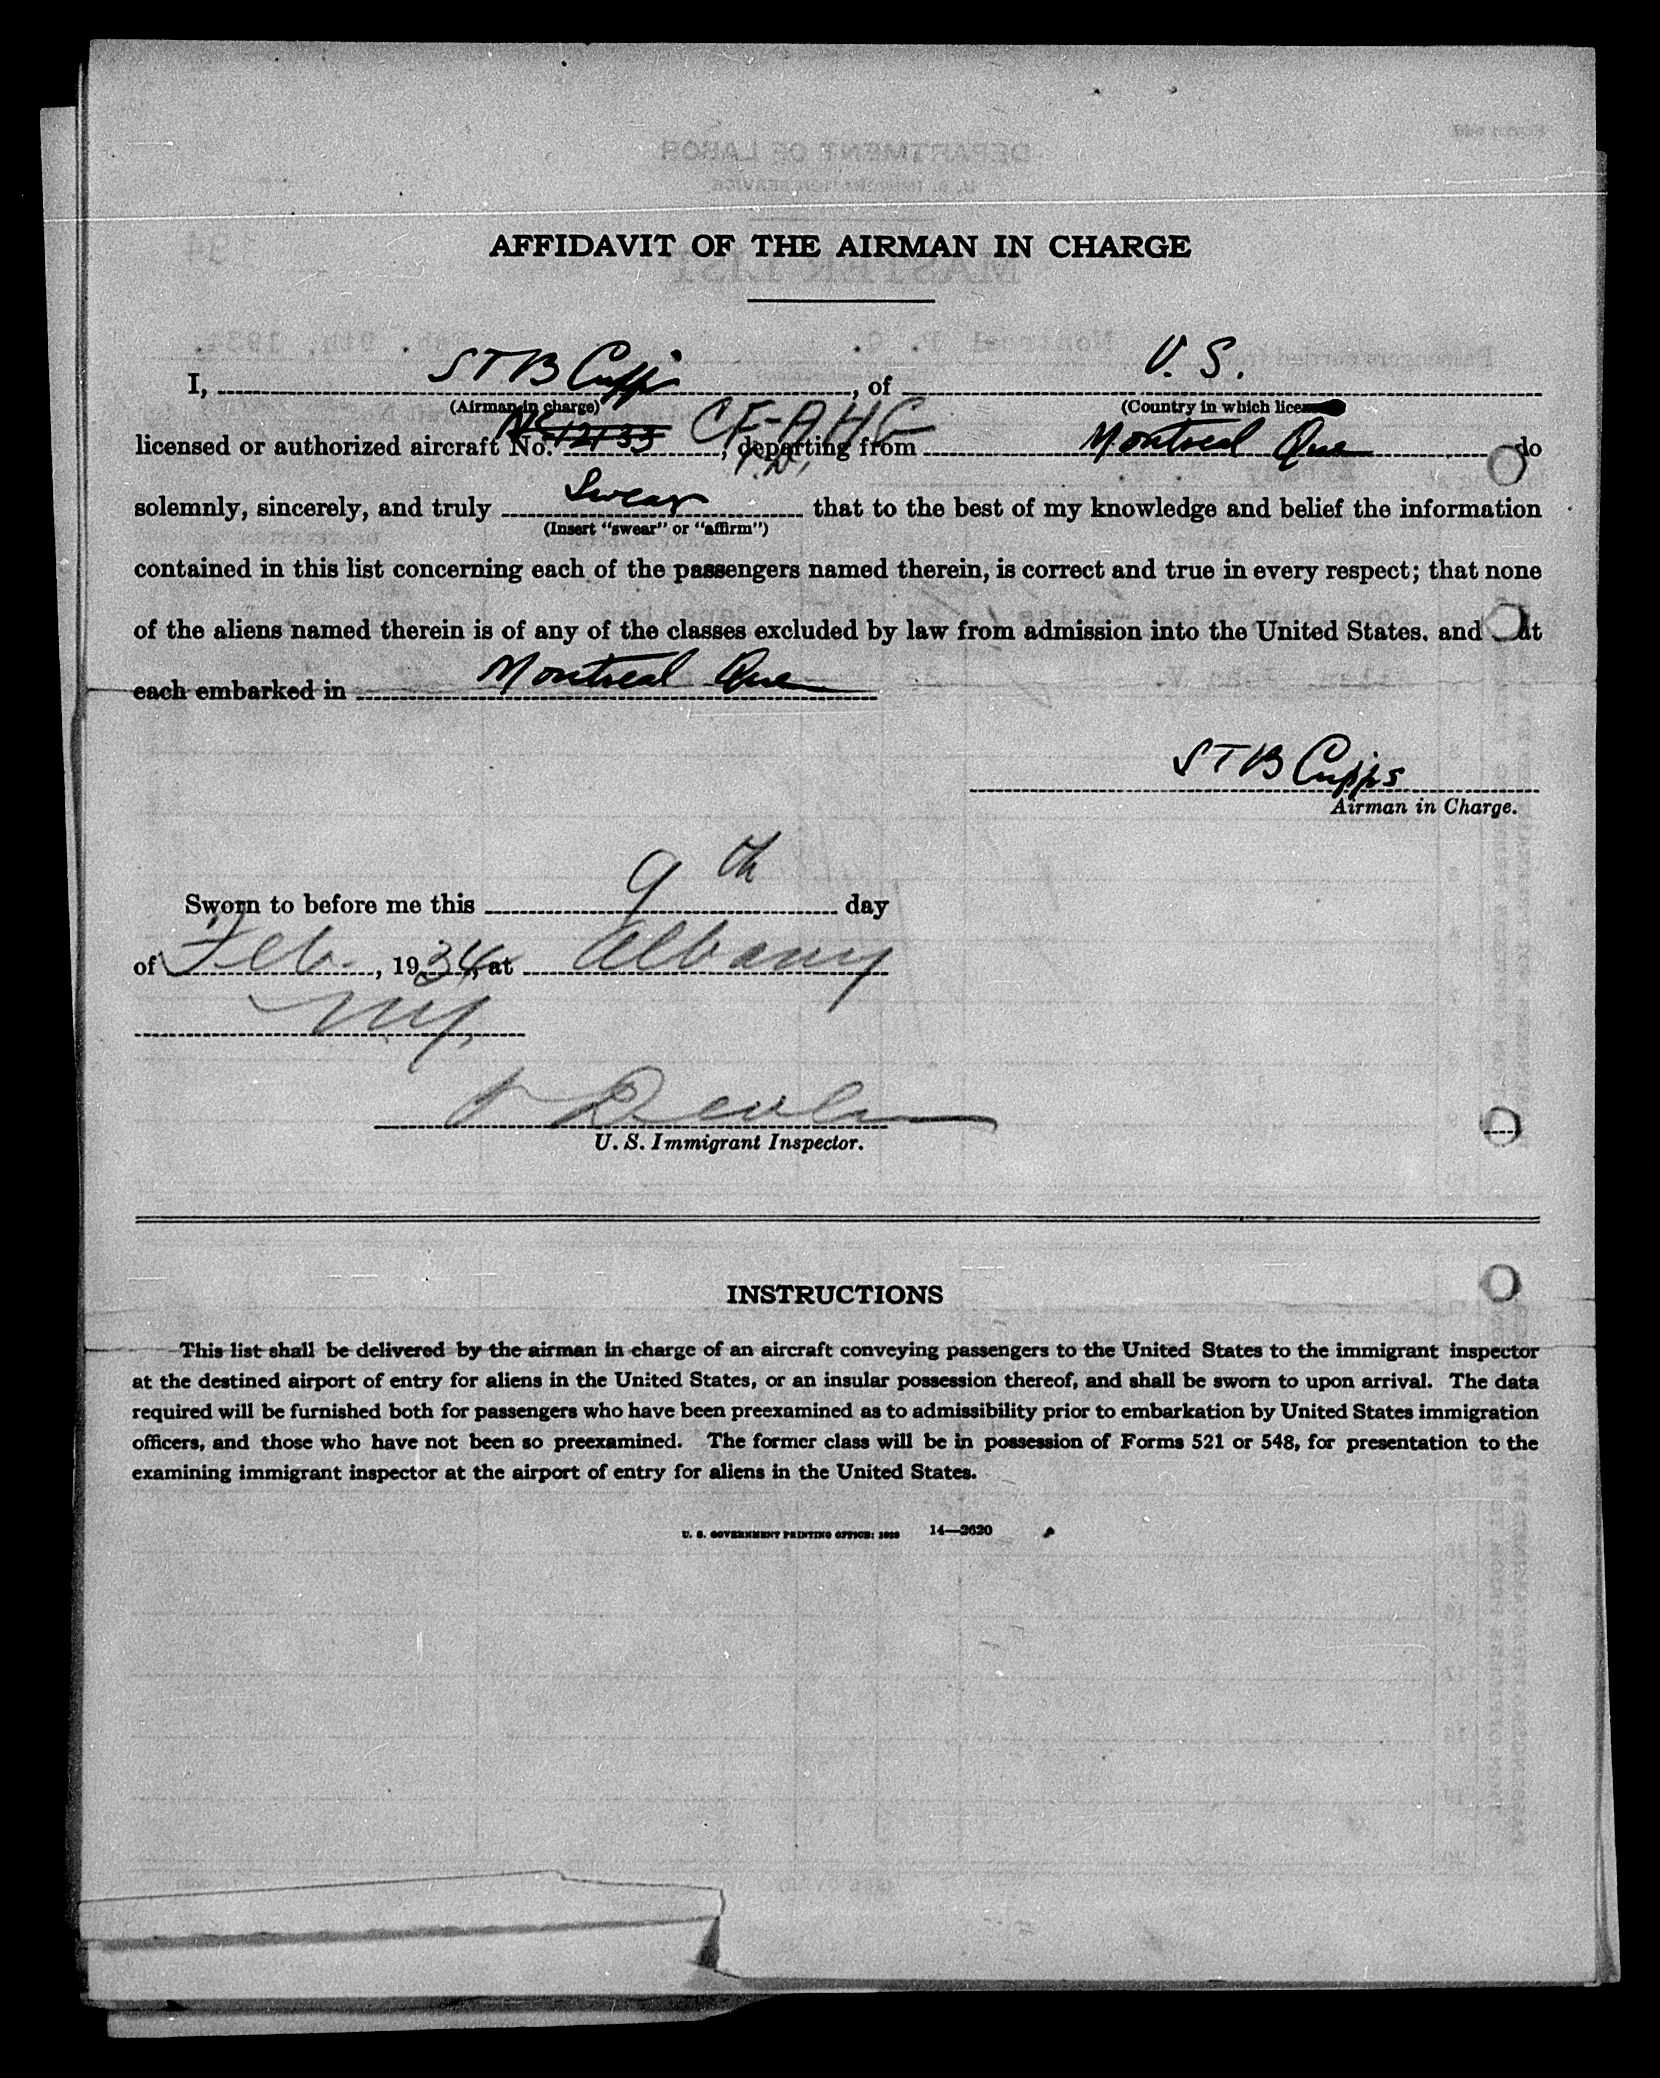 AFFIDAVIT OF THE AIRMAN IN CHARGE
I, STB Cupps, of U. S.
(Airman in charge) (Country in which
licensed or authorized aircraft No. NC 12133 CF-AHG, departing from Montreal Que do
solemnly, sincerely, and truly Swear that to the best of my knowledge and belief the information
(Insert "swear" or "affirm")
contained in this list concerning each of the passengers named therein, is correct and true in every respect; that none
of the aliens named therein is of any of the classes excluded by law from admission into the United States, and
each embarked in Montreal Que
STB Cupps
Airman in Charge.
Sworn to before me this 9th day
of Feb., 1934, at Albany
NY.
U. S. Immigrant Inspector.
INSTRUCTIONS
This list shall be delivered by the airman in charge of an aircraft conveying passengers to the United States to the immigrant inspector
at the destined airport of entry for aliens in the United States, or an insular possession thereof, and shall be sworn to upon arrival. The data
required will be furnished both for passengers who have been preexamined as to admissibility prior to embarkation by United States immigration
officers, and those who have not been so preexamined. The former class will be in possession of Forms 521 or 548, for presentation to the
examining immigrant inspector at the airport of entry for aliens in the United States.
U. S. GOVERNMENT PRINTING OFFICE: 14—2620